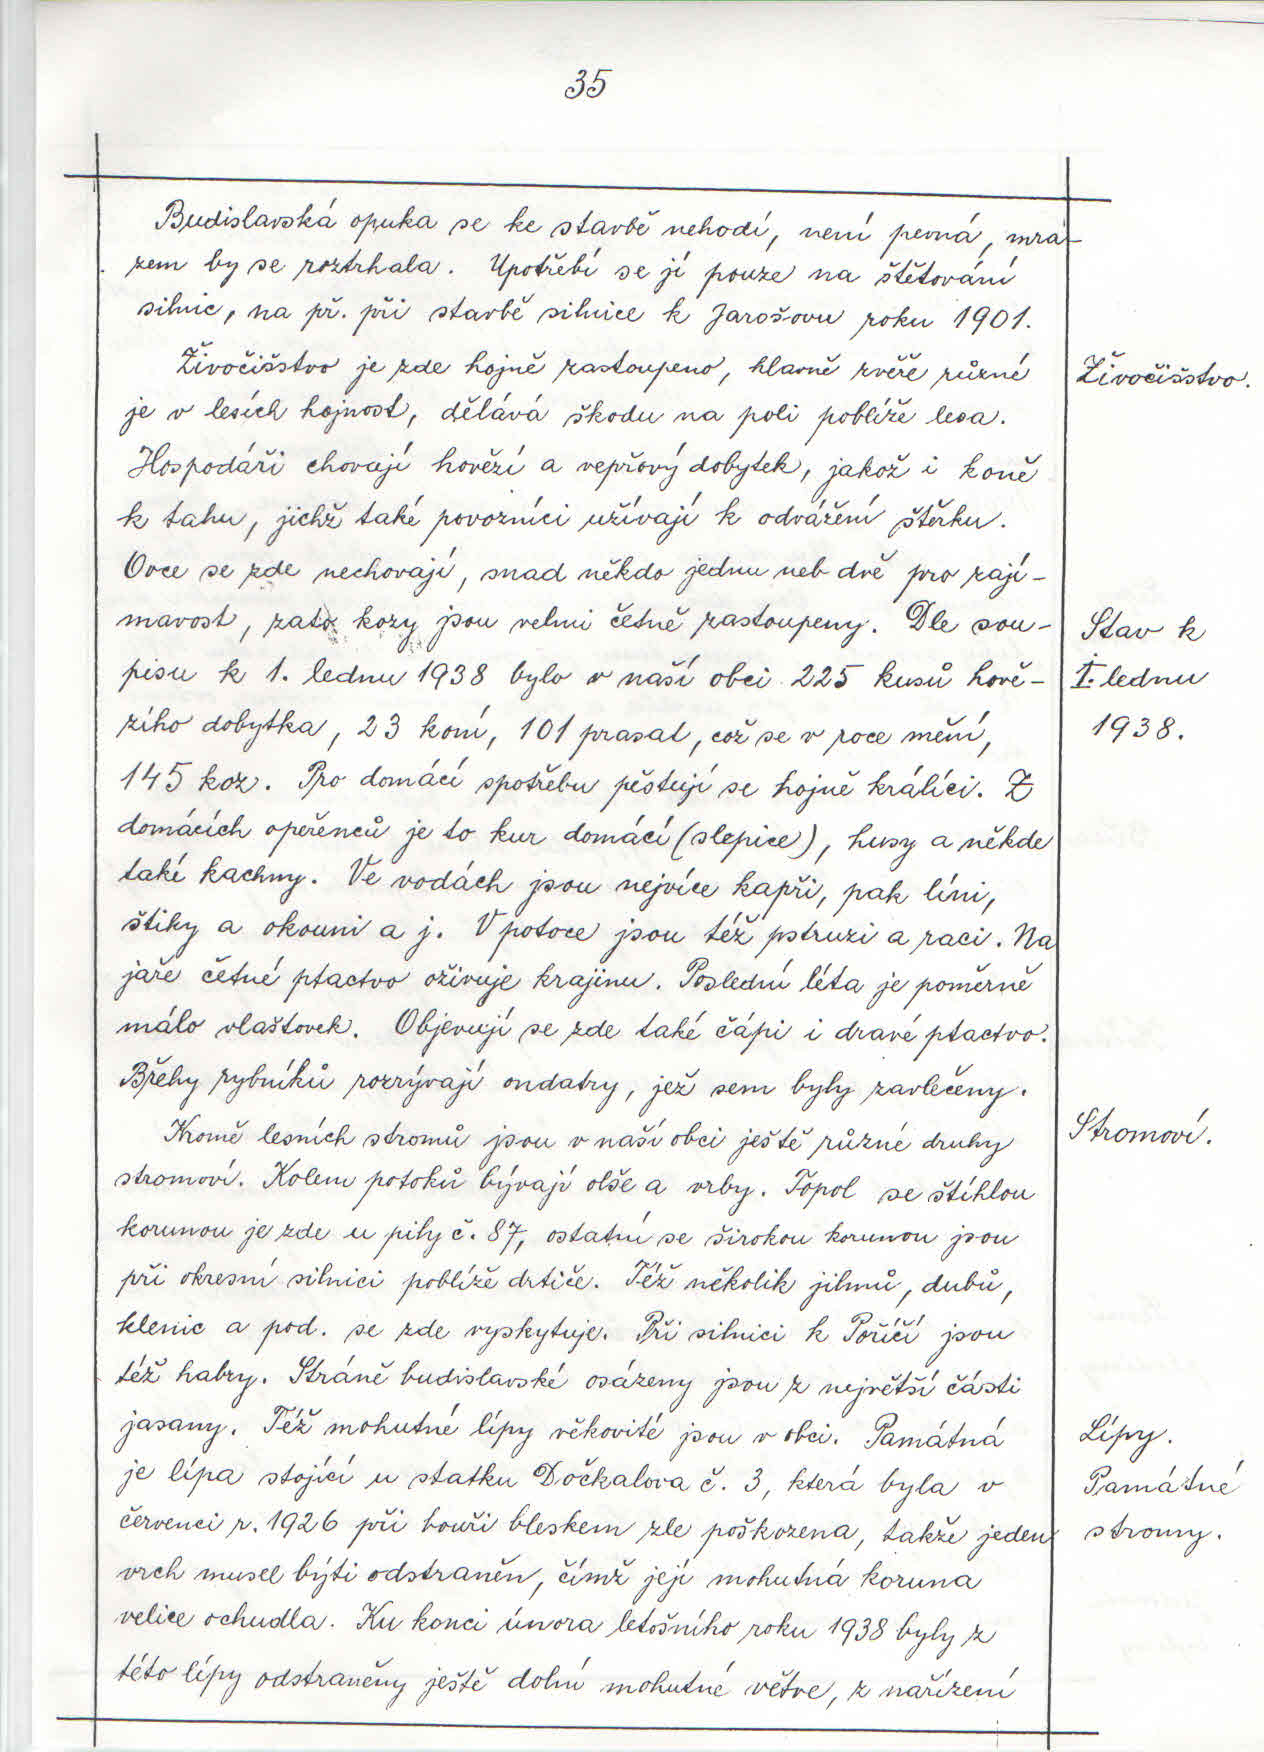 35
Budislavská opuka se ke stavbě nehodí, není pevná, mra-
zem by se roztrhala. Upotřebí se jí pouze na štětování
silnic, na př. při stavbě silnice k Jarošovu roku 1901.
Živočišstvo je zde hojně zastoupeno, hlavně zvěře různé
Živočišstvo.
je v lesích hojnost, dělává škodu na poli poblíže lesa.
Hospodáři chovají hovězí a vepřový dobytek, jakož i koně
k tahu, jichž také povozníci užívají k odvážení štěrku.
Ovce se zde nechovají, snad někdo jednu neb dvě pro zají-
mavost, zato kozy jsou velmi četně zastoupeny. Dle sou-
Stav k
pisu k 1. lednu 1938 bylo v naší obci 225 kusů hově-
I. lednu
zího dobytka, 23 koní, 101 prasat, což se v roce mění,
1938.
145 koz. Pro domácí spotřebu pěstují se hojně králíci. Z
domácích opeřenců je to kur domácí (slepice), husy a někde
také kachny. Ve vodách jsou nejvíce kapři, pak líni,
štiky a okouni a j. V potoce jsou též pstruzi a raci. Na
jaře četné ptactvo oživuje krajinu. Poslední léta je poměrně
málo vlaštovek. Objevují se zde také čápi i dravé ptactvo.
Břehy rybníků rozrývají ondatry, jež sem byly zavlečeny.
Kromě lesních stromů jsou v naší obci ještě různé druhy
Stromoví.
stromoví. Kolem potoků bývají olše a vrby. Topol se štíhlou
korunou je zde u pily č. 87, ostatní se širokou korunou jsou
při okresní silnici poblíže drtiče. Též několik jilmů, dubů,
klenic a pod. se zde vyskytuje. Při silnici k Poříčí jsou
též habry. Stráně budislavské osázeny jsou z největší části
jasany. Též mohutné lípy věkovité jsou v obci. Památná
Lípy.
je lípa stojící u statku Dočkalova č. 3, která byla v
Památné
červenci r. 1926 při bouři bleskem zle poškozena, takže jeden
stromy.
vrch musel býti odstraněn, čímž její mohutná koruna
velice ochudla. Ku konci února letošního roku 1938 byly z
této lípy odstraněny ještě dolní mohutné větve, z nařízení